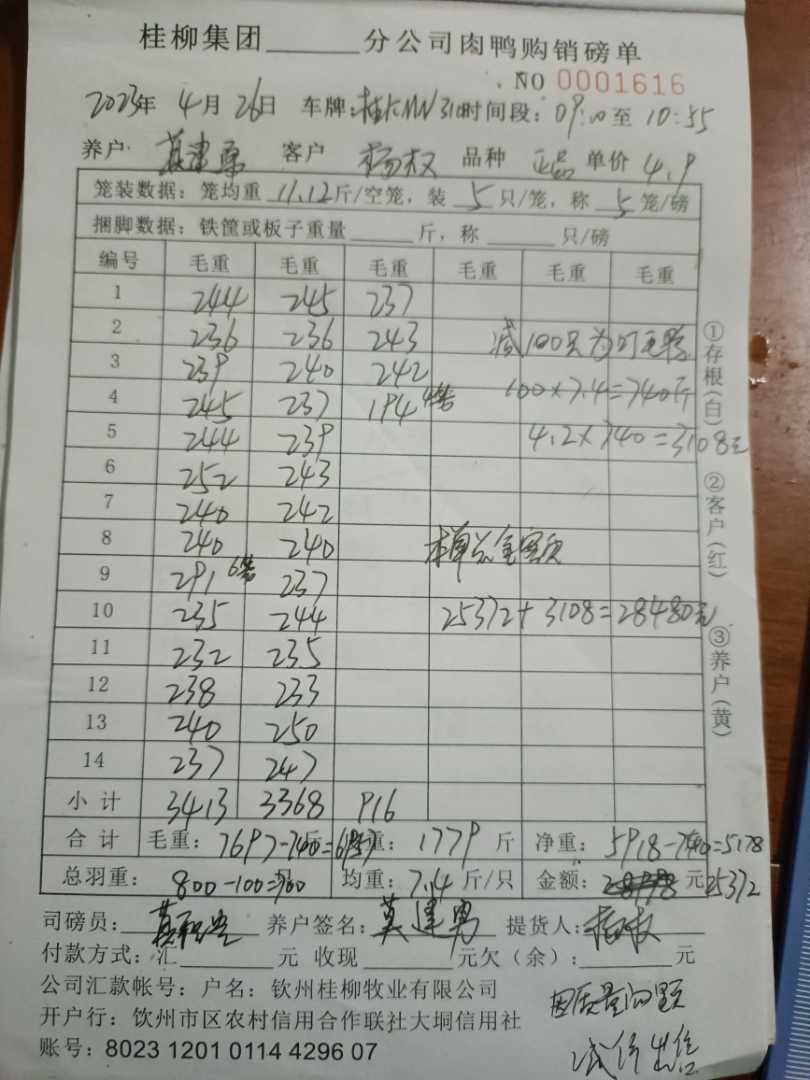 桂柳集团______分公司肉鸭购销磅单
NO 0001616
2023年 4月 26日 车牌: 时间段: 09:00至 10:55
养户: 客户 杨权 品种 正品 单价 4.9
笼装数据: 笼均重 11.12斤/空笼, 装 5 只/笼, 称 5 笼/磅
捆脚数据: 铁筐或板子重量______斤, 称______只/磅
编号 毛重 毛重 毛重 毛重 毛重 毛重
1 244 245 237
2 236 236 243 减100只为
3 239 240 242
4 245 237 194 4笼 100×7.4=740斤
5 244 239 4.2×740=3108元
6 252 243
7 240 242
8 240 240 本单总金额
9 291 6笼 237
10 235 244 25372+3108=28480元
11 232 235
12 238 233
13 240 250
14 237 247
小计 3413 3368 916
合计 毛重: 7697-740=6957 重: 1779 斤 净重: 5918-740=5178
总羽重: 800-100=700 均重: 7.4 斤/只 金额: 元 25372
司磅员: 养户签名: 莫建勇 提货人: 杨权
付款方式: 汇______元 收现______元欠(余):______元
公司汇款帐号: 户名: 钦州桂柳牧业有限公司
开户行: 钦州市区农村信用合作联社大垌信用社
账号: 8023 1201 0114 4296 07
因质量问题
减价出售
①存根(白) ②客户(红) ③养户(黄)